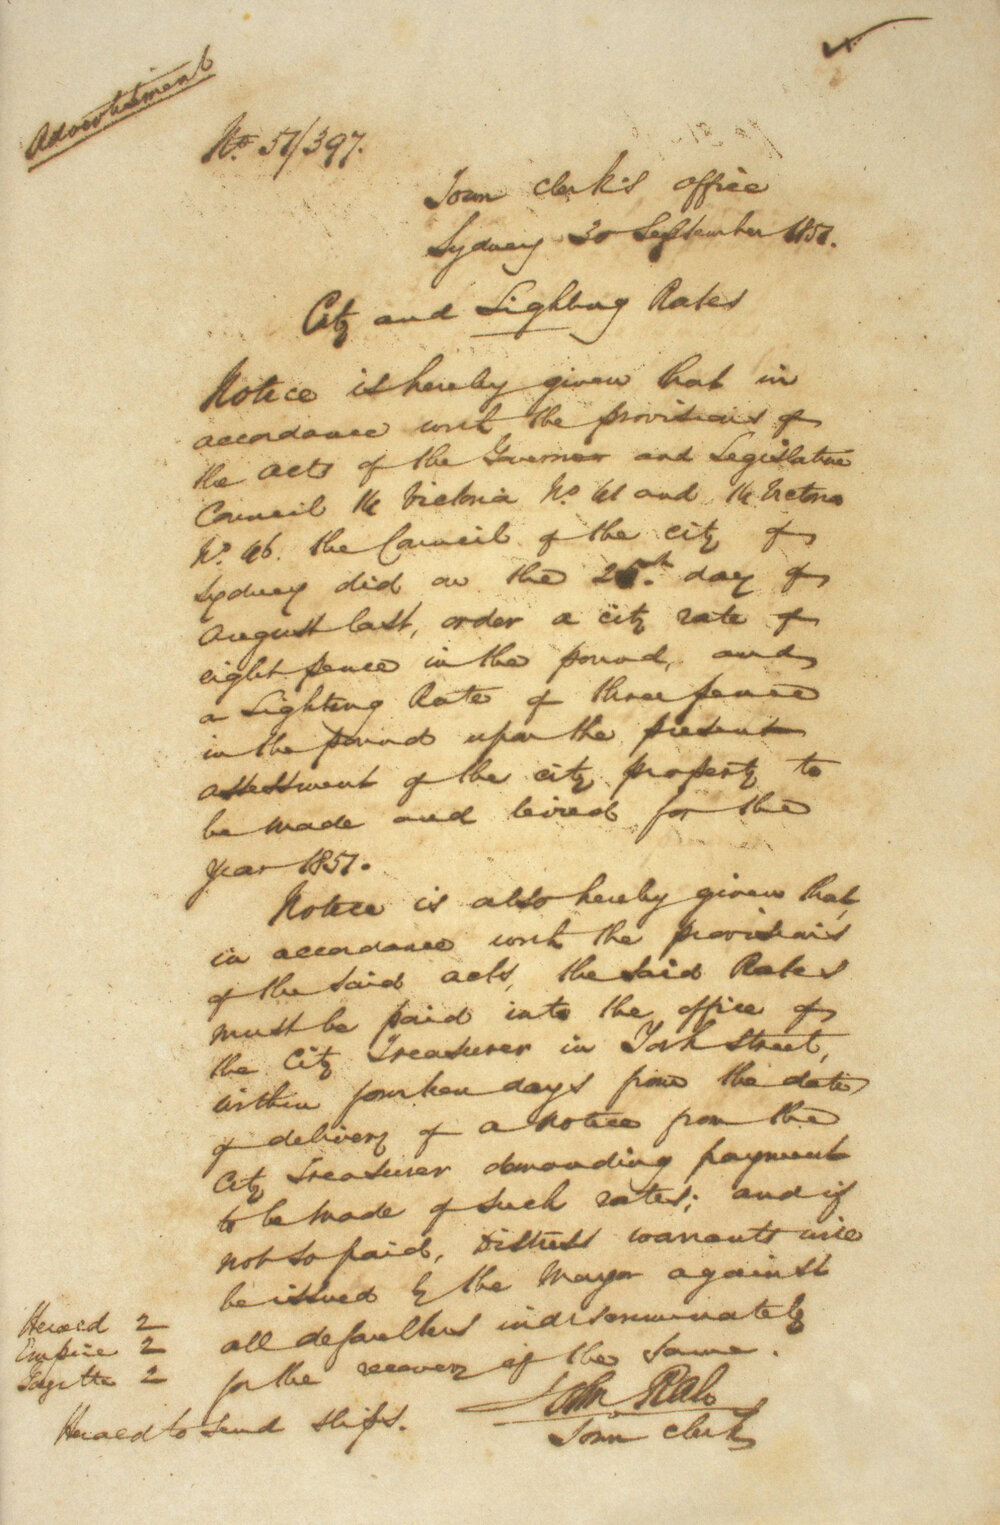 Advertisement
No. 51/397.
Town Clerk's Office
Sydney 30 September 1851.
City and Lighting Rates
Notice is hereby given that in
accordance with the provisions of
the acts of the Governor and Legislative
Council 14 Victoria No. 41 and 14 Victoria
No. 46. the Council of the City of
Sydney did on the 25th day of
August last, order a city rate of
eight pence in the pound, and
a Lighting Rate of three pence
in the pound upon the present
assessment of the city property to
be made and levied for the
year 1851.
Notice is also hereby given that
in accordance with the provisions
of the said acts, the said Rates
must be paid into the office of
the City Treasurer in York Street,
within fourteen days from the date
of delivery of a notice from the
City Treasurer demanding payment
to be made of such rates; and if
not so paid, Distress warrants will
be issued by the Mayor against
all defaulters indiscriminately
for the recovery of the same.
John Rae
Town Clerk
Herald 2
Empire 2
Gazette 2
Herald to send slips.